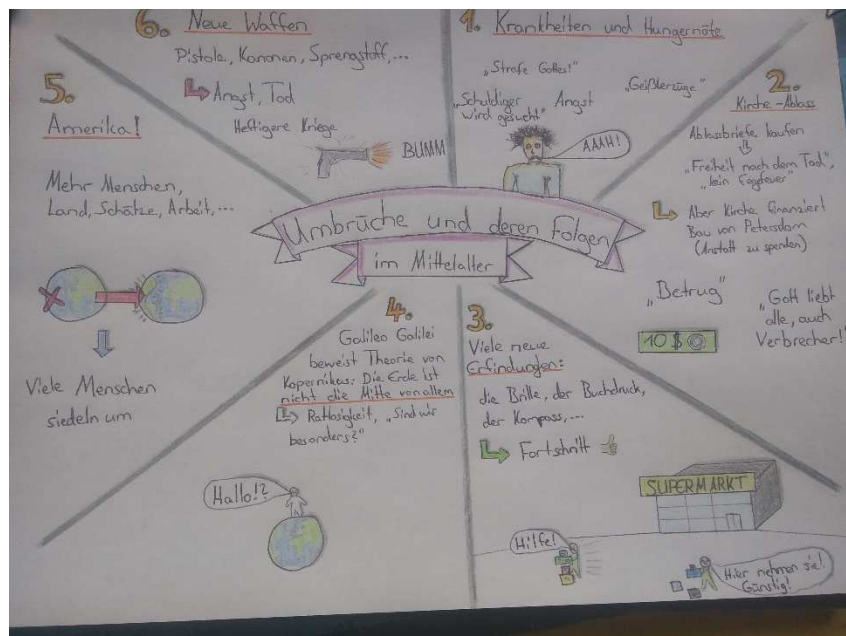 Umbrüche und deren Folgen
im Mittelalter
1. Krankheiten und Hungernöte
„Strafe Gottes!"
„Geißlerzüge"
„Schuldiger
wird gesucht"
Angst
AAAH!
2.
Kirche - Ablass
Ablassbriefe kaufen
„Freiheit nach dem Tod",
„kein Fegefeuer"
Aber Kirche finanziert
Bau von Petersdom
(Anstatt zu spenden)
„Betrug"
„Gott liebt
alle, auch
Verbrecher!"
10 $
3.
Viele neue
Erfindungen:
die Brille, der Buchdruck,
der Kompass,...
Fortschritt
SUPERMARKT
Hilfe!
Hier nehmen sie!
Günstig!
4.
Galileo Galilei
beweist Theorie von
Kopernikus: Die Erde ist
nicht die Mitte von allem
Ratlosigkeit, „Sind wir
besonders?"
Hallo!?
5.
Amerika!
Mehr Menschen,
Land, Schätze, Arbeit,...
Viele Menschen
siedeln um
6. Neue Waffen
Pistole, Kanonen, Sprengstoff,...
Angst, Tod
Heftigere Kriege
BUMM